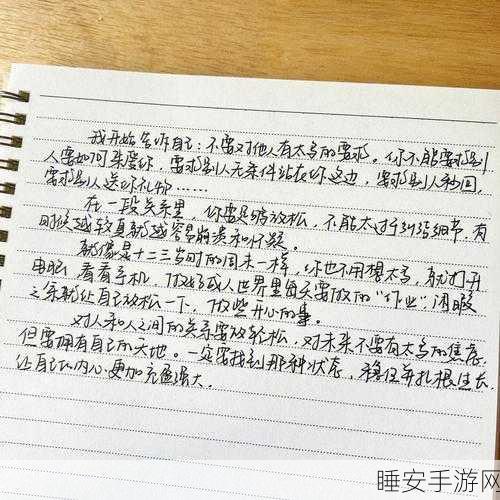 我开始告诉自己：不要对他人有太多的要求。你不能要求别
人要如何来爱你，要求别人无条件站在你这边，要求别人秒回，
要求别人送你礼物……
在一段关系里，你要足够放松，不能太过于纠结细节，有
时候越较真就越容易崩溃和怀疑。
就像是十二三岁时的周末一样，你也不用想太多，就打开
电脑，看看手机，做好成人世界里每天要做的“作业”，闲暇
之余就让自己放松一下，做些开心的事。
对人和人之间的关系要放轻松，对未来不要有太多的焦虑，
但要拥有自己的天地。一定要找到那种状态，稳住并扎根生长
让自己的内心更加充盈强大。
睡安手游网